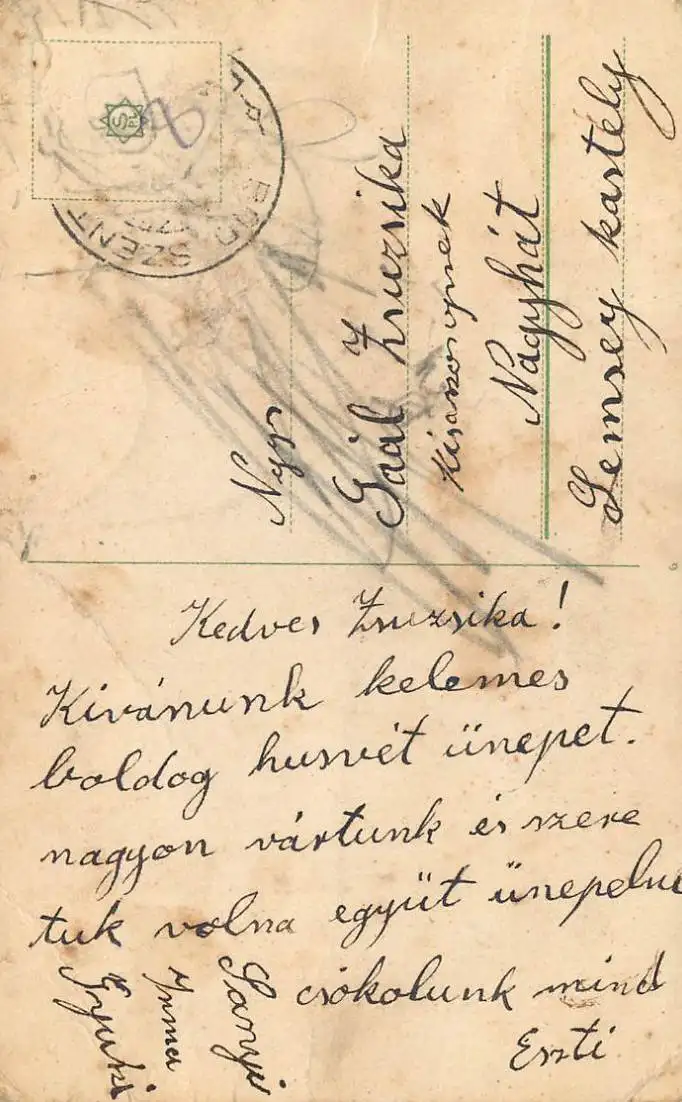 Gaál Zsuzsika
kisasszonynak
Nagyhát
Lemsey kastély
Kedves Zsuzsika!
Kivánunk kelemes
boldog husvét ünepet.
nagyon vártunk és szere
tuk volna együt ünepelni
csókolunk mind
Eszti
Sanyi
Irma
Gyuki
SZENT